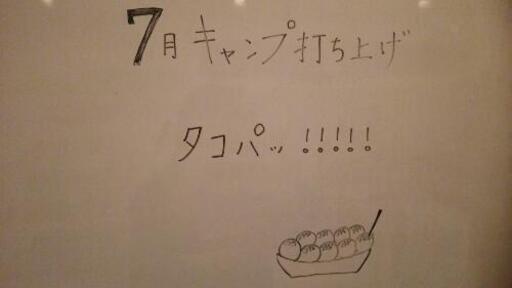 7月キャンプ打ち上げ
タコパッ!!!!!